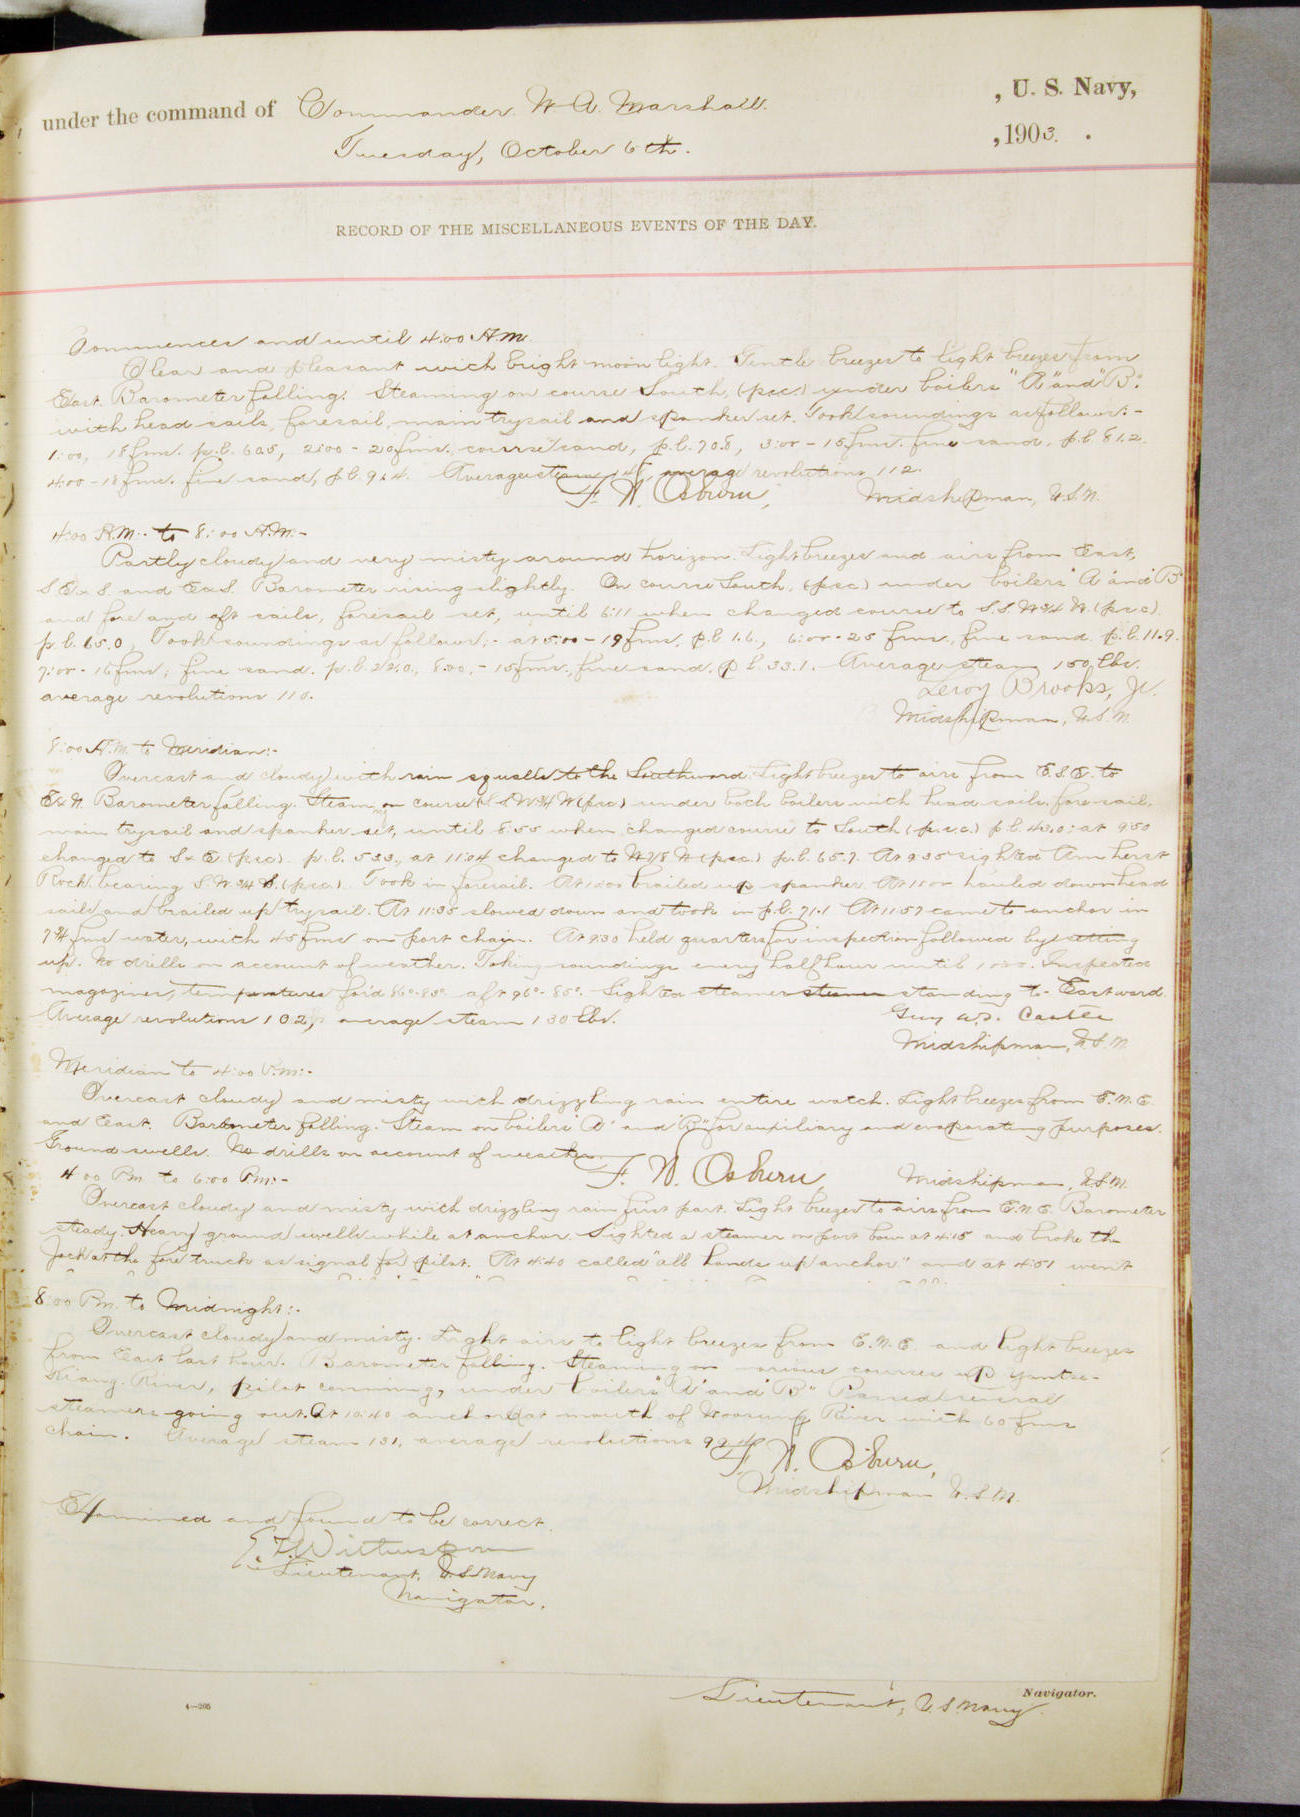 under the command of Commander W. A. Marshall. , U. S. Navy,
Tuesday, October 6th. , 1903.
RECORD OF THE MISCELLANEOUS EVENTS OF THE DAY.
Commences and until 4:00 A.M.
Clear and pleasant with bright moon light. Gentle breezes to light breezes from
East. Barometer falling. Steaming on course South, (psc.) under boilers "A" and "B"
with head sails, foresail, main trysail and spanker set. Took soundings as follows:-
1:00, 18 fms. p.l. 60.5, 2:00 - 20 fms. course sand, p.l. 70.8, 3:00 - 15 fms. fine sand. p.l. 81.2
4:00 - 18 fms. fine sand, p.l. 92.4. Average steam average revolutions 112.
F. N. Osburn, Midshipman, U.S.N.
4:00 A.M. to 8:00 A.M:-
Partly cloudy and very misty around horizon. Light breezes and airs from East,
S.E. x S. and ExS. Barometer rising slightly. On course South, (psc) under boilers "A" and "B"
and fore and aft sails, foresail set, until 6:11 when changed course to S.S.W.3/4 W. (psc)
p.l. 65.0, Took soundings as follows:- at 5:00 - 19 fms. p.l. 1.6., 6:00 - 25 fms., fine sand. p.l. 11.9.
7:00 - 16 fms; fine sand. p.l. 22.0, 8:00, - 15 fms., fine sand, p.l. 33.1. Average steam 150 lbs.
average revolutions 110.
Leroy Brooks, Jr.
Midshipman, U.S.N.
8:00 A.M. to Meridian:-
Overcast and cloudy with rain squalls to the Southward. Light breezes to airs from E.S.E. to
ExN. Barometer falling. Steaming on course S.S.W.3/4 W (psc) under both boilers with head sails, foresail,
main trysail and spanker set, until 8:55 when changed course to South (p.s.c.) p.l. 43.0; at 9:50
changed to SxE (psc). p.l. 53.3, at 11:04 changed to W7/8 N (psc.) p.l. 65.7. At 9:35 sighted Amherst
Rock bearing S.W.3/4 S. (psc.). Took in foresail. At 10:00 brailed up spanker. At 11:00 hauled down head
sails and brailed up trysail. At 11:35 slowed down and took in p.l. 71.1 At 11:57 came to anchor in
7 3/4 fms water, with 45 fms on port chain. At 9:30 held quarters for inspection followed by setting
up. No drills on account of weather. Taking soundings every half hour until 10:00. Inspected
magazines, temperatures for'd 86°-83° aft 96°-85°. Sighted steamer standing to Eastward.
Average revolutions 102, average steam 130 lbs.
Guy W.S. Castle
Midshipman, U.S.N.
Meridian to 4:00 P.M:-
Overcast cloudy and misty with drizzling rain entire watch. Light breezes from E.N.E.
and East. Barometer falling. Steam on boilers "A" and "B" for auxiliary and evaporating purposes.
Ground swells. No drills on account of weather.
F. N. Osburn, Midshipman, U.S.N.
4:00 P.M. to 6:00 P.M:-
Overcast cloudy and misty with drizzling rain first part. Light breezes to airs from E.N.E. Barometer
steady. Heavy ground swells while at anchor. Sighted a steamer on port bow at 4:15 and broke the
Jack at the fore truck as signal for pilot. At 4:40 called "all hands up anchor" and at 4:51 went
8:00 P.M. to Midnight:-
Overcast cloudy and misty. Light airs to light breezes from E.N.E. and light breezes
from East last hour. Barometer falling. Steaming on various courses up Yantse-
Kiang River, pilot conning, under boilers "A" and "B" Passed several
steamers going out. At 10:40 anchored at mouth of Woosung River with 60 fms
chain. Average steam 131, average revolutions 99.4
F. N. Osburn,
Midshipman U.S.N.
Examined and found to be correct.
Lieutenant, U.S. Navy
Navigator.
Navigator.
Lieutenant, U.S. Navy.
4—205